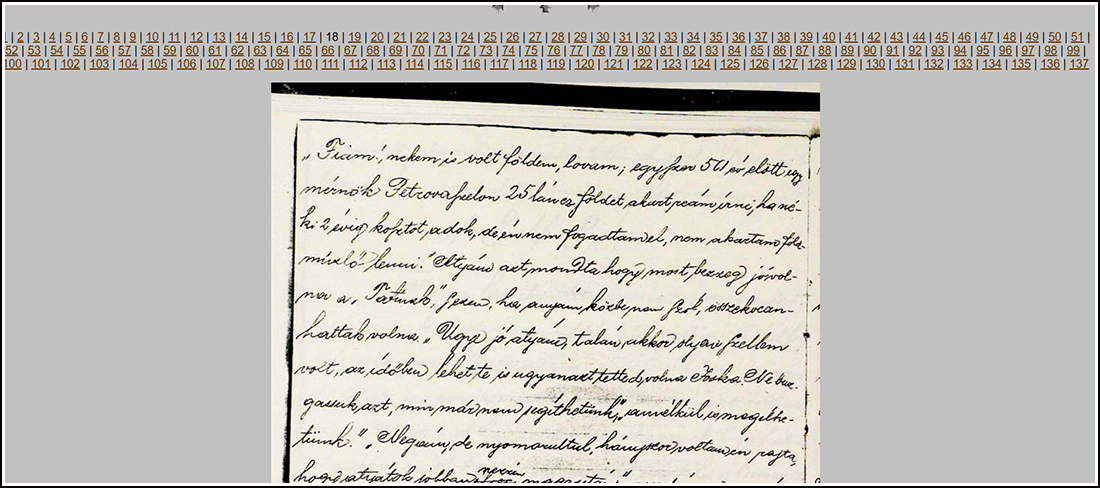 1 | 2 | 3 | 4 | 5 | 6 | 7 | 8 | 9 | 10 | 11 | 12 | 13 | 14 | 15 | 16 | 17 | 18 | 19 | 20 | 21 | 22 | 23 | 24 | 25 | 26 | 27 | 28 | 29 | 30 | 31 | 32 | 33 | 34 | 35 | 36 | 37 | 38 | 39 | 40 | 41 | 42 | 43 | 44 | 45 | 46 | 47 | 48 | 49 | 50 | 51 |
52 | 53 | 54 | 55 | 56 | 57 | 58 | 59 | 60 | 61 | 62 | 63 | 64 | 65 | 66 | 67 | 68 | 69 | 70 | 71 | 72 | 73 | 74 | 75 | 76 | 77 | 78 | 79 | 80 | 81 | 82 | 83 | 84 | 85 | 86 | 87 | 88 | 89 | 90 | 91 | 92 | 93 | 94 | 95 | 96 | 97 | 98 | 99 |
100 | 101 | 102 | 103 | 104 | 105 | 106 | 107 | 108 | 109 | 110 | 111 | 112 | 113 | 114 | 115 | 116 | 117 | 118 | 119 | 120 | 121 | 122 | 123 | 124 | 125 | 126 | 127 | 128 | 129 | 130 | 131 | 132 | 133 | 134 | 135 | 136 | 137
„Fiam!, nekem is volt földem, lovam; egyszer év előtt egy
mérnök 25 láncz földet akart reám írni, ha né-
ki 2 évig kosztot adok, de én nem fogadtam el, nem akartam föld-
mívelő lenni." Atyám azt mondta hogy most bezzeg jó vol-
na a ha anyám közbe nem szol, össze
hattak volna. „Ugye jó atyám, talán akkor olyan szellem
volt, az időben lehet te is ugyanazt tetted volna Jóska. Ne buz-
gassuk azt, min már nem segíthetünk, anélkül is megélhe-
tünk." „Meg ám, de nyomorultul, hányszor voltam én rajta,
hogy atyátok jobban